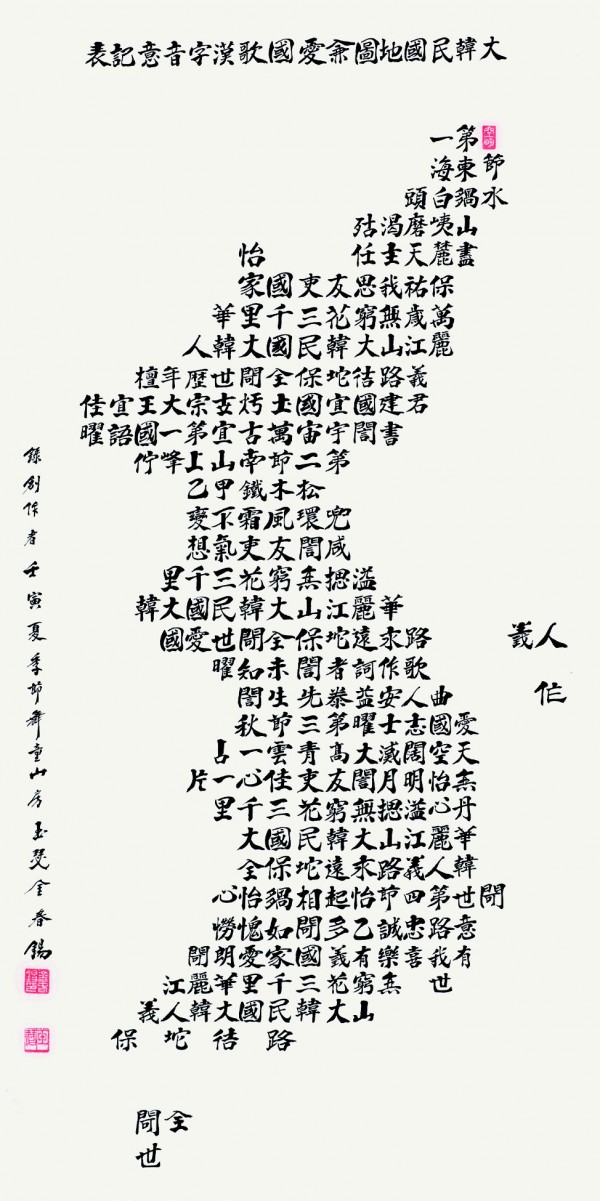 大韓民國地圖兼愛國歌漢字音意記表
第一
節東海
水鍋白頭
山咦磨渴
盡麓天士任怡
保祐我思友吏國家
萬歲無窮花三千里華
麗江山大韓民國大韓人
義路徍坨保全閜世歷年檀
君建國宜國士宗大王宜佳
書誾宇宙萬古宜第一國語曜
第二節南山上峰佇
松木鐵甲乙
兜環風霜不變
咸誾友吏氣想
溢摠無窮花三千里
華麗江山大韓民國大韓
人義
路永遠坨保全閜世愛國
作
歌作詞者誾未知曜
曲安益泰先生誾
愛國志士曜第三節秋
天空闊滅大高青雲一占
無怡明月誾友吏佳心一片
丹心溢摠無窮花三千里
華麗江山大韓民國大
韓人義路永遠坨保全
閜世第四節怡起相鍋保怡心
意路忠誠乙多閜如愧憦
有我喜樂有義國家愛朗閜
世無窮花三千里華麗江
山大韓民國大韓人義
路徍坨保
全
閜
世
錄創作者壬寅夏季節舞童山房玉燮金春錫